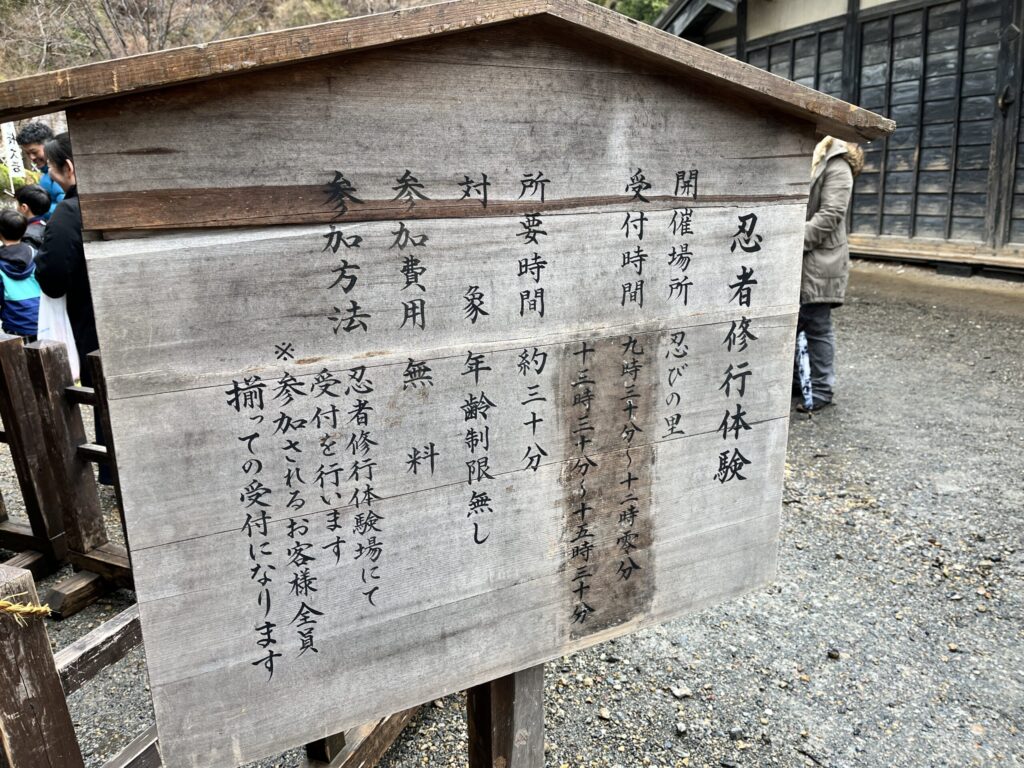 忍者修行体験
開催場所 忍びの里
受付時間 九時三十分～十二時零分
十三時三十分～十五時三十分
所要時間 約三十分
対象 年齢制限無し
参加費用 無料
参加方法 忍者修行体験場にて
受付を行います
※参加されるお客様全員
揃っての受付になります